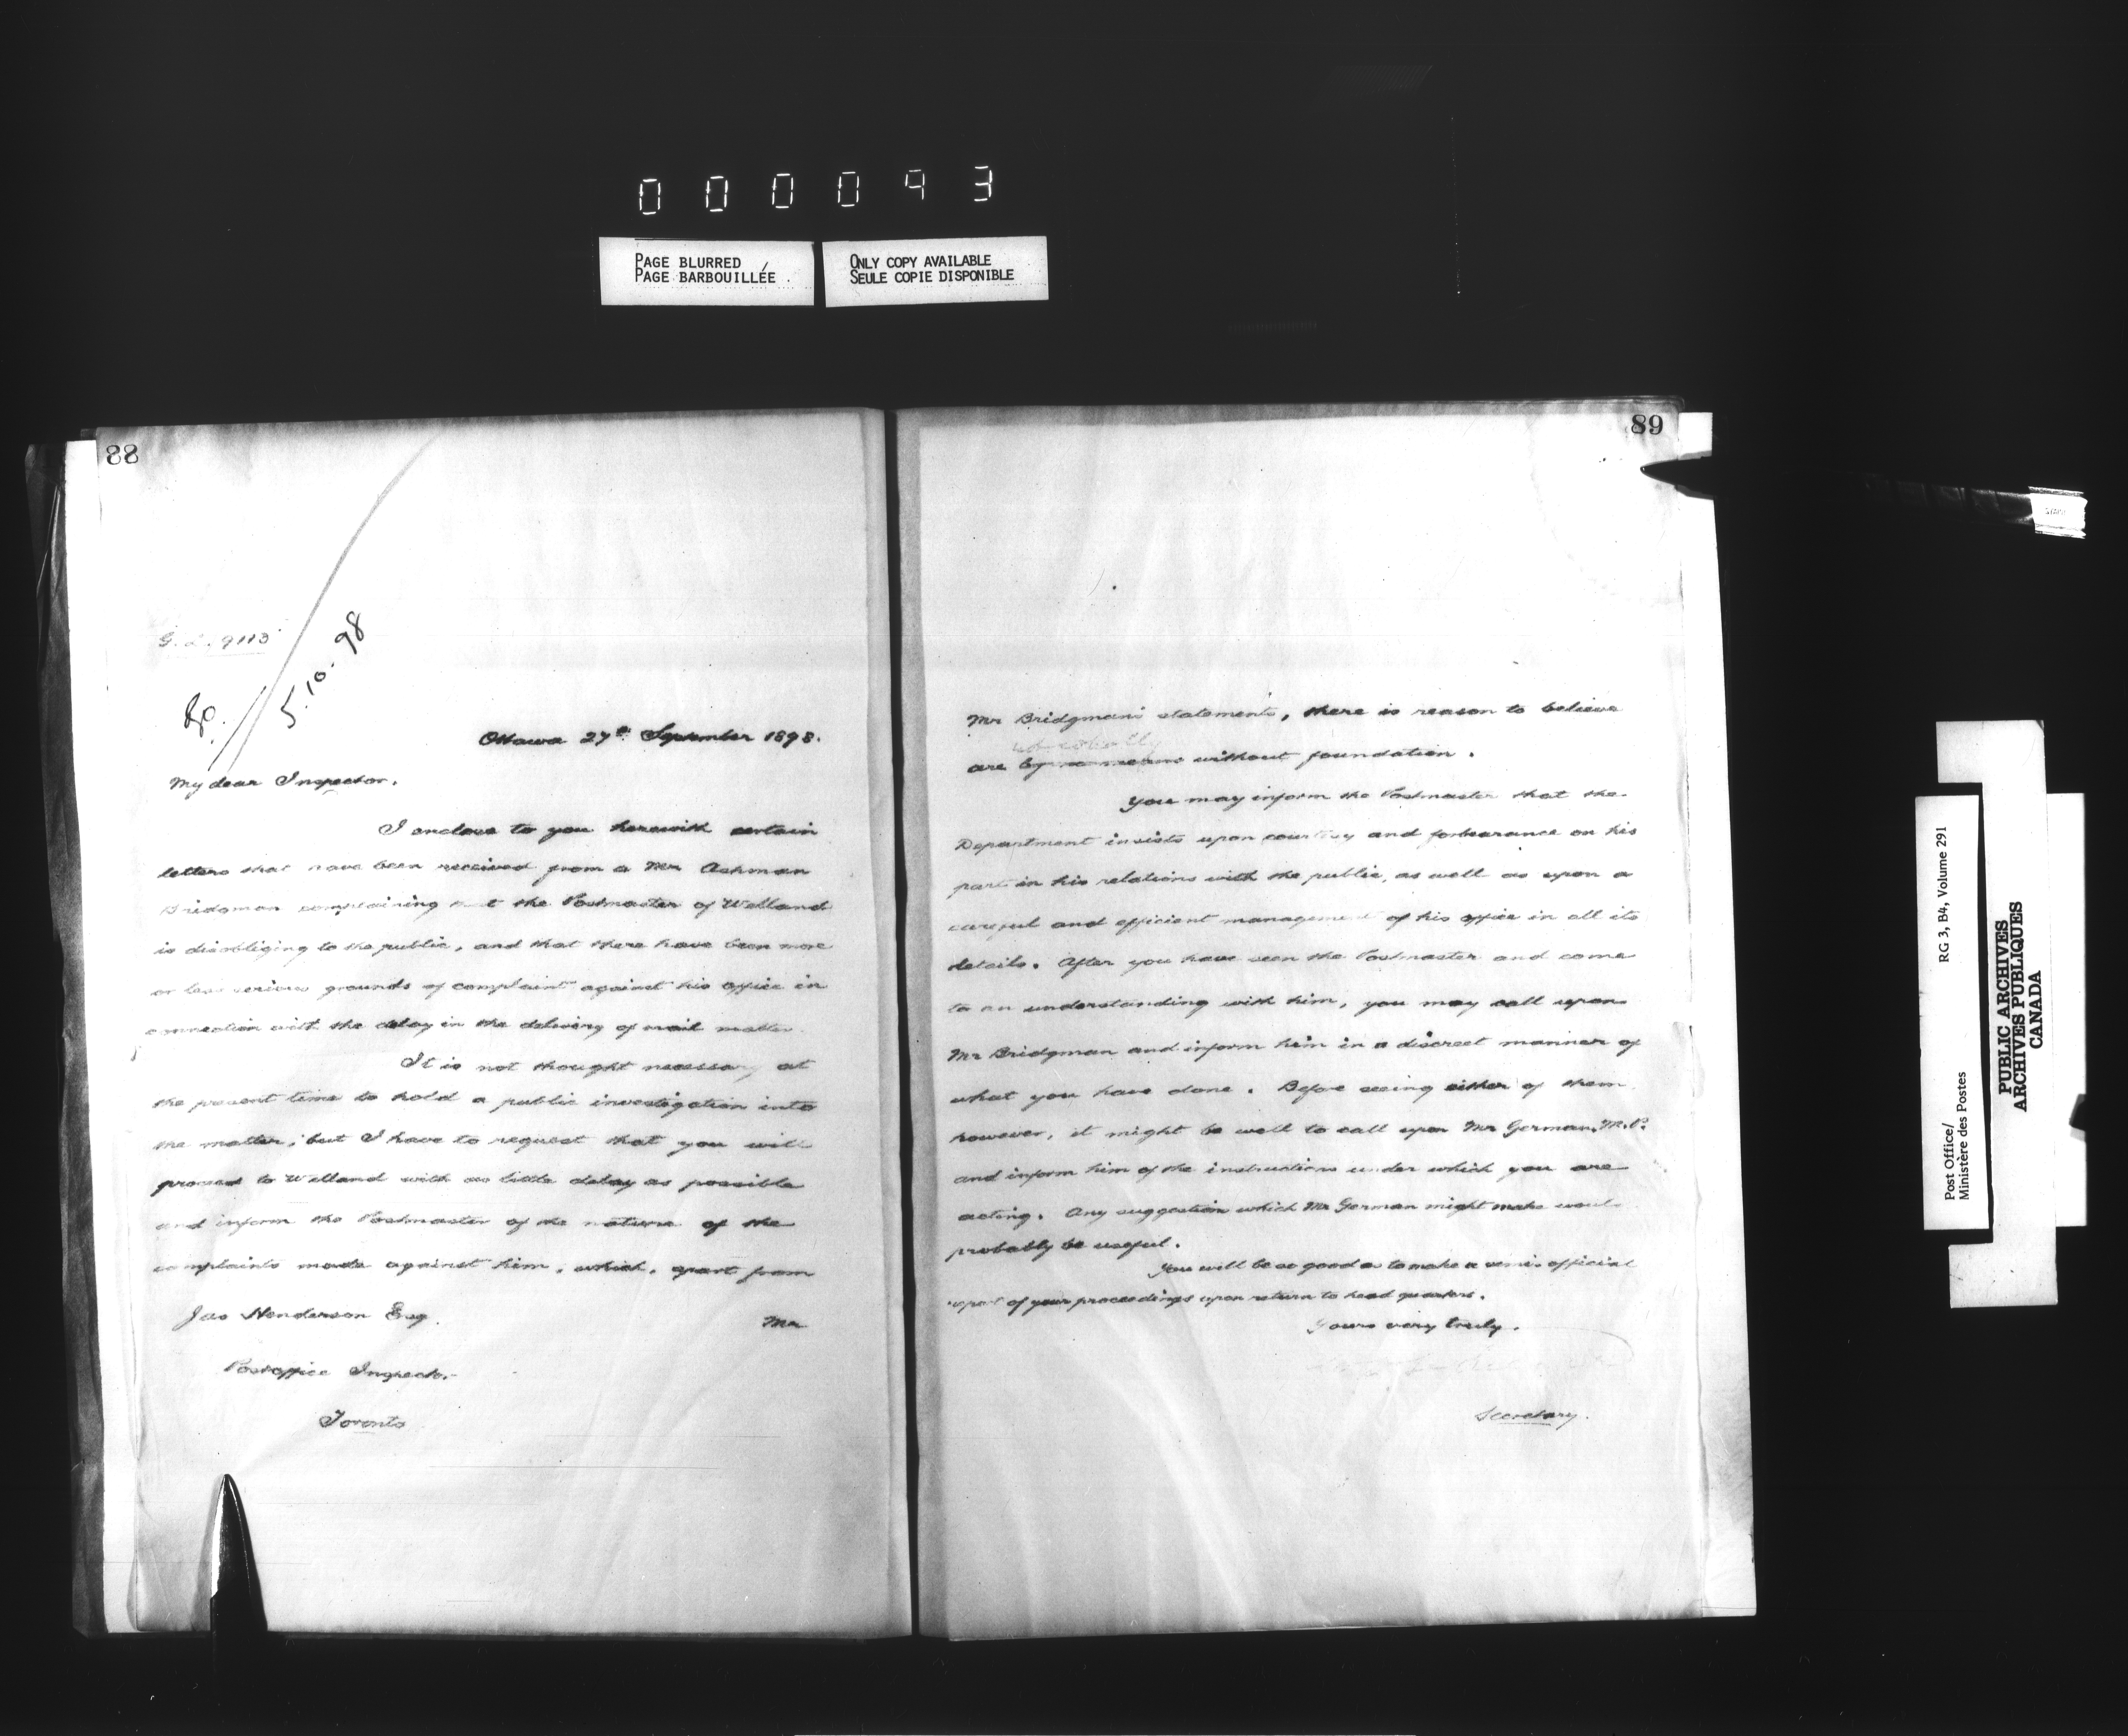 000093
PAGE BLURRED
PAGE BARBOUILLÉE
ONLY COPY AVAILABLE
SEULE COPIE DISPONIBLE
88
5.10.98
Ottawa 27th September 1898.
My dear Inspector.
I enclose to you herewith certain
letters that have been received from a Mr Ashman
Bridgman complaining that the Postmaster of Welland
is disobliging to the public, and that there have been more
or less serious grounds of complaint against his office in
connection with the delay in the delivery of mail matter.
It is not thought necessary at
the present time to hold a public investigation into
the matter; but I have to request that you will
proceed to Welland with as little delay as possible
and inform the Postmaster of the nature of the
complaints made against him, which, apart from
Jas Henderson Esq.
Mr
Postoffice Inspector.
Toronto
89
Mr Bridgman's statements, there is reason to believe
not wholly
are by no means without foundation.
You may inform the Postmaster that the
Department insists upon courtesy and forbearance on his
part in his relations with the public, as well as upon a
careful and efficient management of his office in all its
details. After you have seen the Postmaster and come
to an understanding with him, you may call upon
Mr Bridgman and inform him in a discreet manner of
what you have done. Before seeing either of them
however, it might be well to call upon Mr German, M.P.
and inform him of the instructions under which you are
acting. Any suggestion which Mr German might make would
probably be useful.
You will be so good as to make a semi official
report of your proceedings upon return to head quarters.
Yours very truly.
Secretary.
Post Office/
Ministère des Postes
RG 3, B4, Volume 291
PUBLIC ARCHIVES
ARCHIVES PUBLIQUES
CANADA